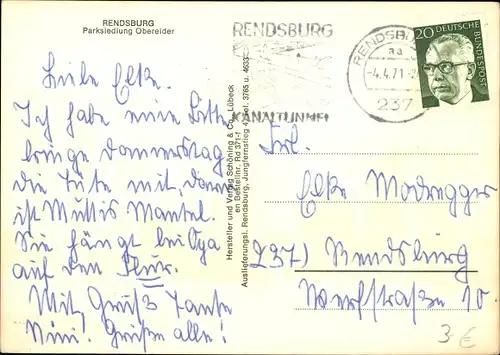 RENDSBURG
Parksiedlung Obereider
Liebe Elke.
Ich habe eine Bitte
bringe Donnerstag
die Tüte mit, darin
ist Muttis Mantel.
Sie hängt bei Oya
auf den Flur.
Mit, Gruß Tante
Nini. Grüße alle!
Hersteller und Verlag Schöning & Co., Lübeck
en Bestellnr. Rd 371-f
Auslieferungsl. Rendsburg, Jungfernstieg 4, Tel. 3765 u. 4633
RENDSBURG
KANALTUNNEL
RENDSBU
aa
-4.4.71-
237
20 DEUTSCHE BUNDESPOST
Frl.
Elke Modregger
237) Rendsburg
Werftstraße 10
3€